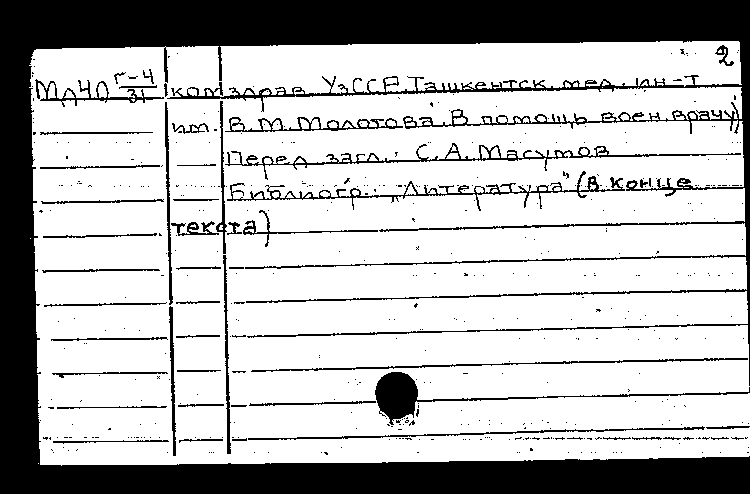 2
МЛ40 Г-4/31 комздрав УзССР. Ташкентск. мед. ин-т
им. В.М. Молотова. В помощь воен. врачу)
Перед загл.: С.А. Масумов
Библиогр.: „Литература" (в конце
текста)